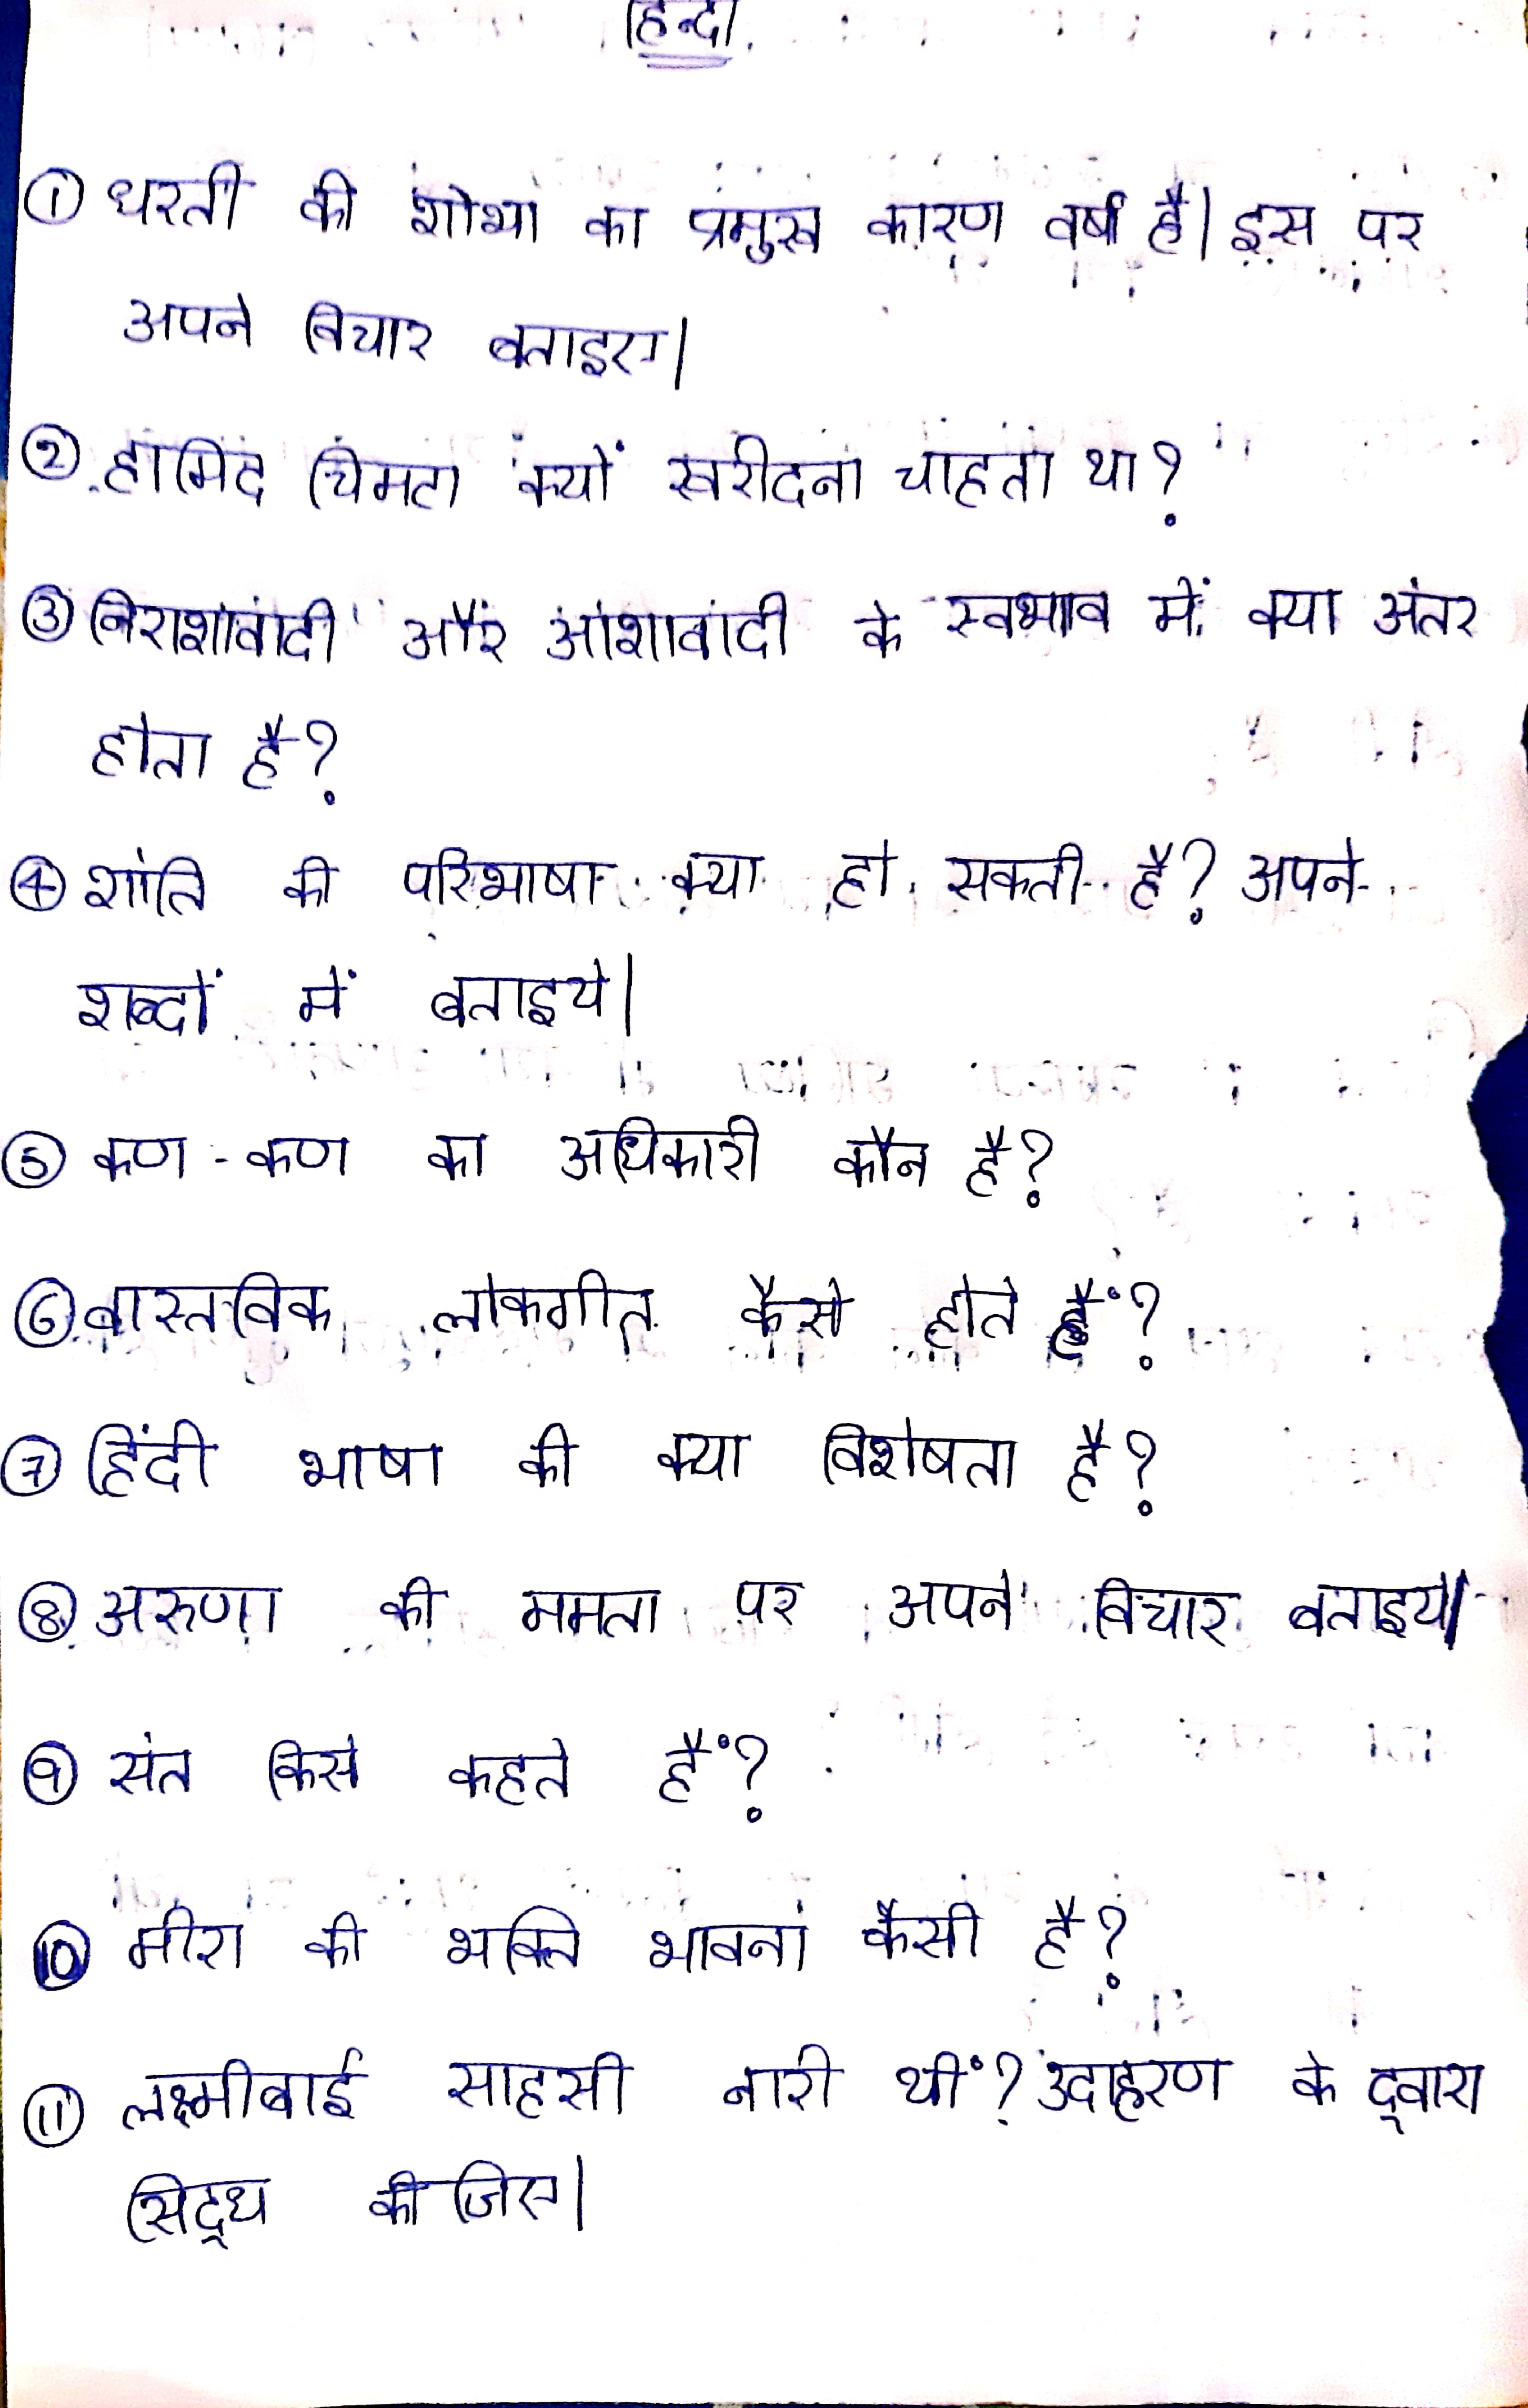 हिन्दी
① धरती की शोभा का प्रमुख कारण वर्षा है। इस पर
अपने विचार बताइए।
② हामिद चिमटा क्यों खरीदना चाहता था?
③ निराशावादी और आशावादी के स्वभाव में क्या अंतर
होता है?
④ शांति की परिभाषा क्या हो सकती है? अपने
शब्दों में बताइये।
⑤ कण-कण का अधिकारी कौन है?
⑥ वास्तविक लोकगीत कैसे होते हैं?
⑦ हिंदी भाषा की क्या विशेषता है?
⑧ अरुणा की ममता पर अपने विचार बताइये।
⑨ संत किसे कहते हैं?
⑩ मीरा की भक्ति भावना कैसी है?
⑪ लक्ष्मीबाई साहसी नारी थीं? उदाहरण के द्वारा
सिद्ध कीजिए।